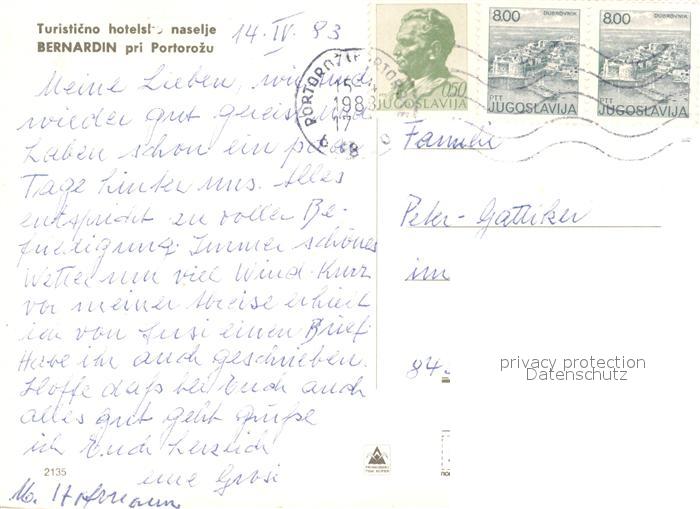 Turistično hotelsko naselje
BERNARDIN pri Portorožu
14.IV.83
Meine Lieben, wir sind
wieder gut gereist und
haben schon ein paar
Tage hinter uns. Alles
entspricht zu voller Be-
friedigung. Immer schönes
Wetter nur viel Wind. Kurz
vor meiner Abreise erhielt
ich von Susi einen Brief.
Habe ihr auch geschrieben.
Hoffe daß bei Euch auch
alles gut geht grüße
ich Euch herzlich
eure Grosi
2135
0,50
JUGOSLAVIJA
8.00
DUBROVNIK
PTT
JUGOSLAVIJA
8.00
DUBROVNIK
PTT
JUGOSLAVIJA
PORTOROŽ
15
1983
17
Familie
Peter-Gattiker
im
84
privacy protection
Datenschutz